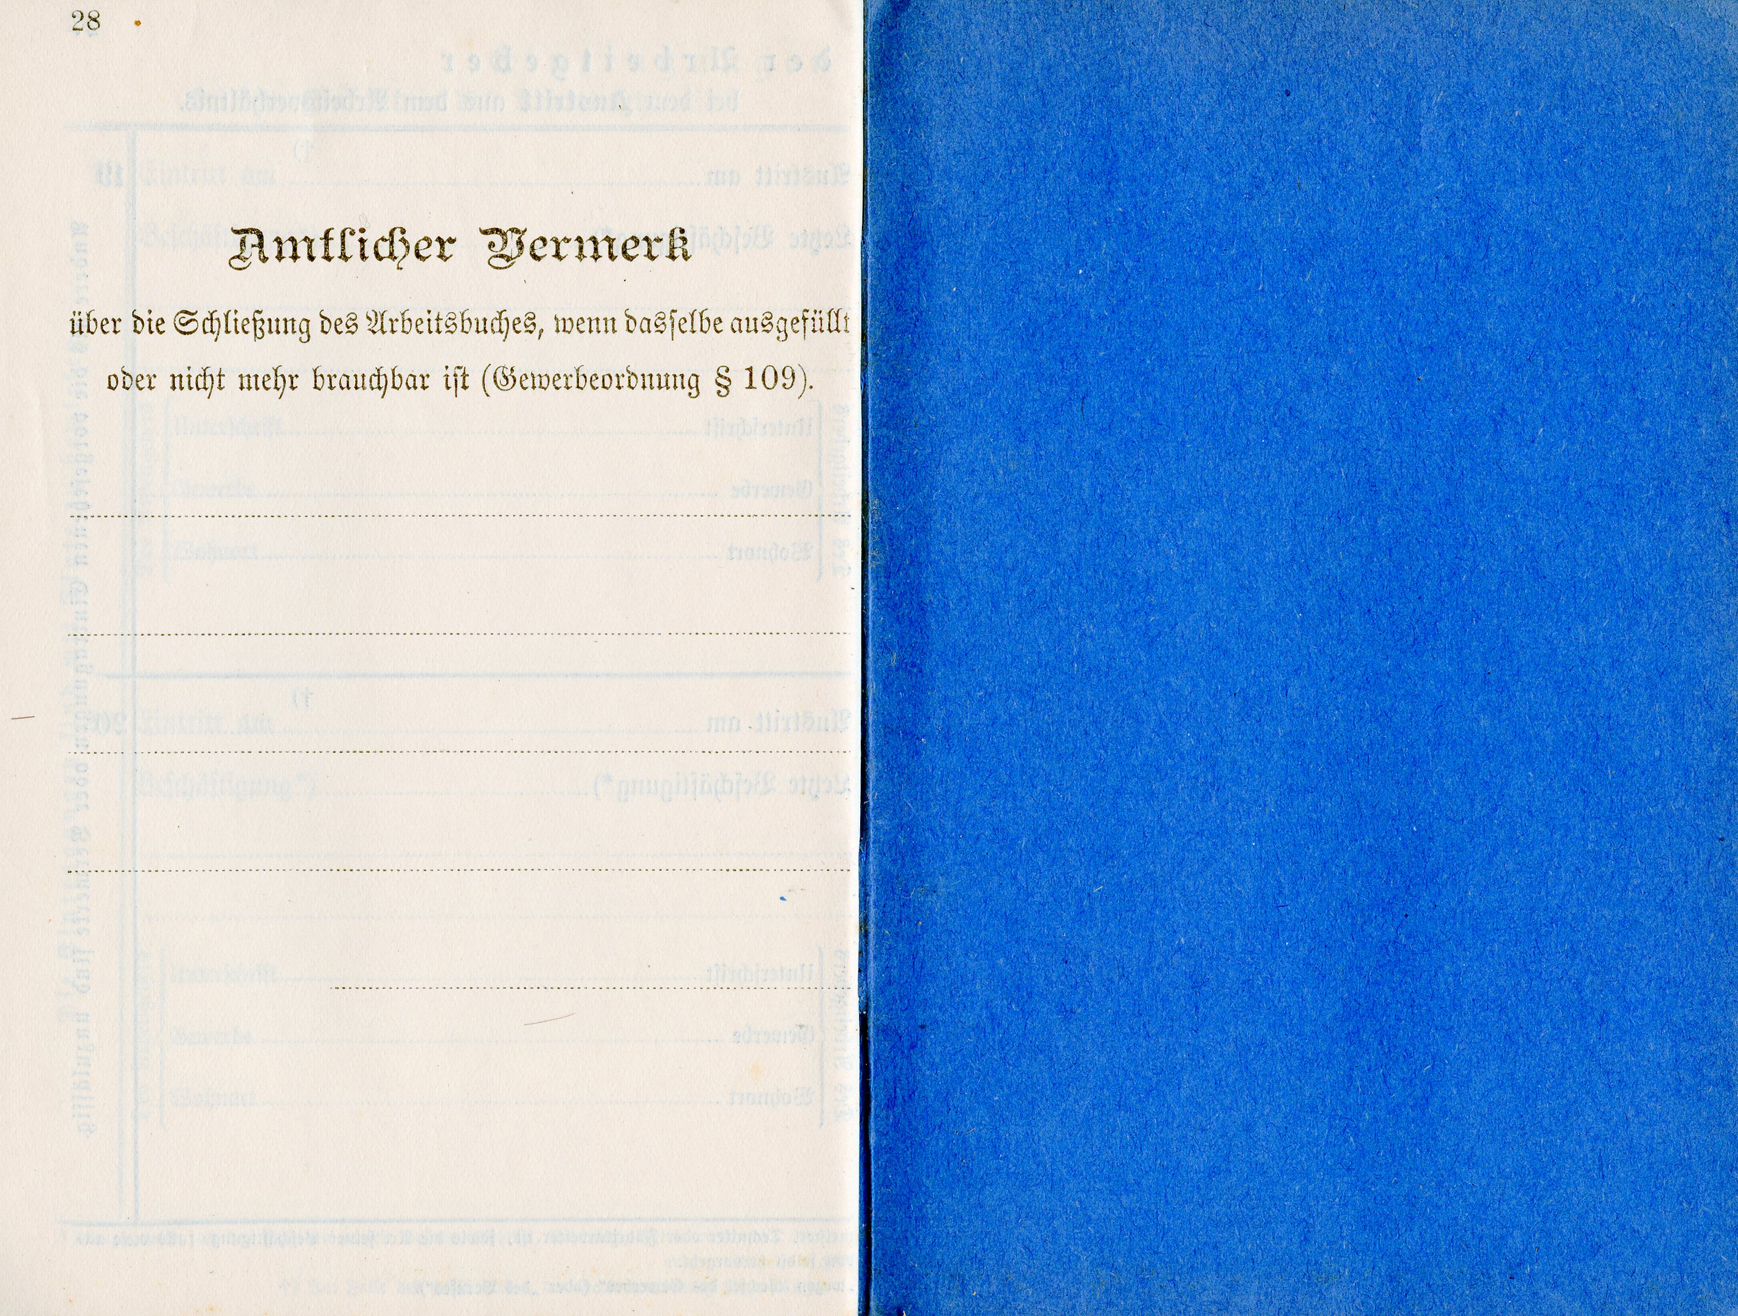 28
Amtlicher Vermerk
über die Schließung des Arbeitsbuches, wenn dasselbe ausgefüllt
oder nicht mehr brauchbar ist (Gewerbeordnung § 109).